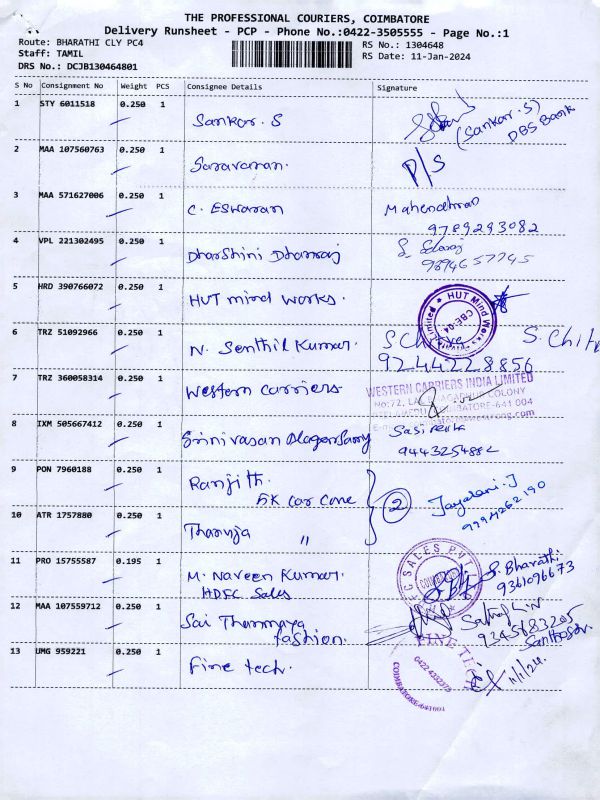 THE PROFESSIONAL COURIERS, COIMBATORE
Delivery Runsheet - PCP - Phone No.:0422-3505555 - Page No.:1
Route: BHARATHI CLY PC4
Staff: TAMIL
DRS No.: DCJB130464801
RS No.: 1304648
RS Date: 11-Jan-2024
S No Consignment No Weight PCS Consignee Details Signature
1 STY 6011518 0.250 1 Sankar. S (Sankar. S)
DBS Bank
2 MAA 107560763 0.250 1 Saravanan. P/S
3 MAA 571627006 0.250 1 C. Eswaran Mahendhran
9789293082
4 VPL 221302495 0.250 1 Dharshini Dhanraj S. Selvaraj
9894657745
5 HRD 390766072 0.250 1 HUT mind works. HUT Mind Works Limited CBE-04
6 TRZ 51092966 0.250 1 N. Senthil Kumar. S Chitra S. Chitr
9244228856
7 TRZ 360058314 0.250 1 Western carriers WESTERN CARRIERS INDIA LIMITED
No:72, COLONY
COIMBATORE-641 004
8 IXM 505667412 0.250 1 Srinivasan Alagarsamy Sasirekha
9443254882
9 PON 7960188 0.250 1 Ranjith.
5K Car Care
2 Jayalani. J
9994262190
10 ATR 1757880 0.250 1 Thanuja "
11 PRO 15755587 0.195 1 M. Naveen Kumar.
HDFC Sales
C SALES PVT COIMBATORE S. Bharathi
9361096673
12 MAA 107559712 0.250 1 Sai Thanmaya
fashion.
9345683205
Santhosh.
13 UMG 959221 0.250 1 Fine tech. FINE TECH
0422 4332373
COIMBATORE-641 001
11/1/24.